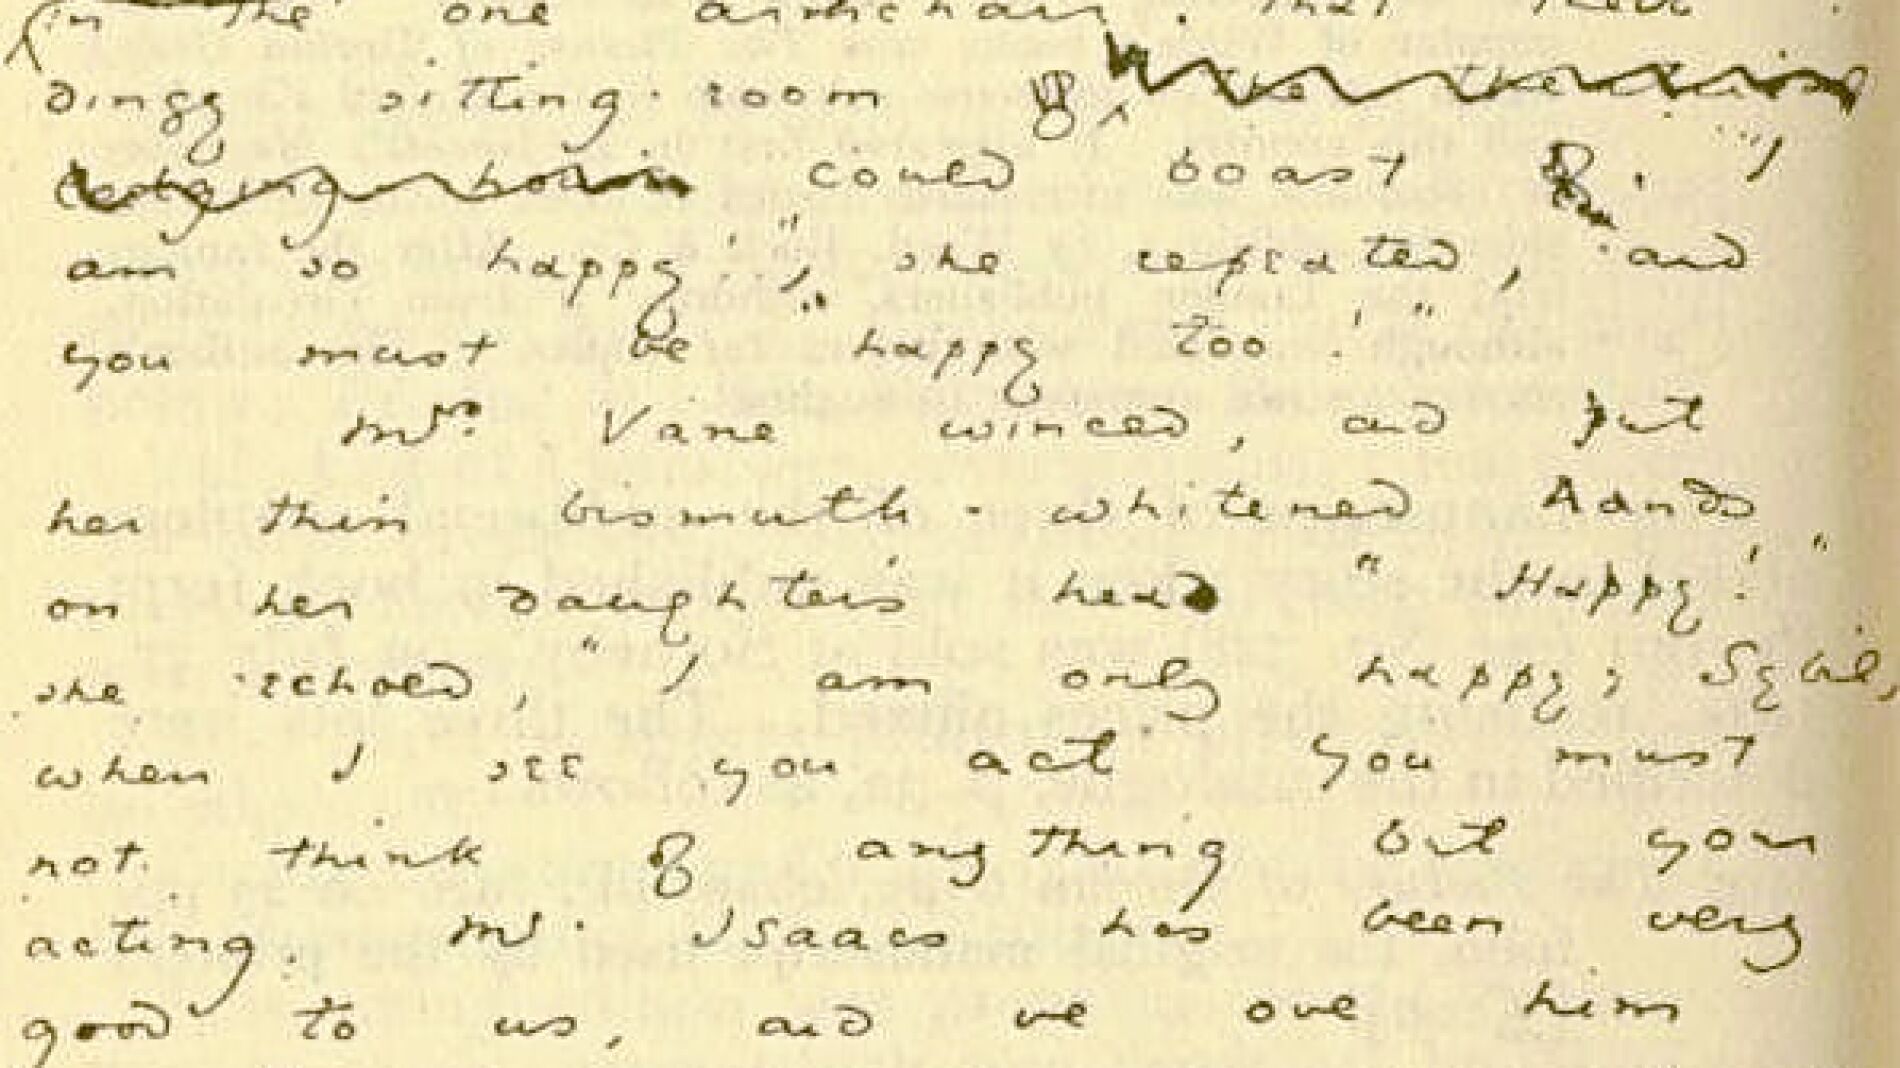 in the one armchair that their
dingy sitting-room of the
lodging could boast of. "I
am so happy!", she repeated, "and
you must be happy too!"
Mrs. Vane winced, and put
her thin bismuth-whitened hands
on her daughter's head "Happy!"
she echoed, "I am only happy, Sybil,
when I see you act You must
not think of anything but your
acting. Mr. Isaacs has been very
good to us, and we owe him